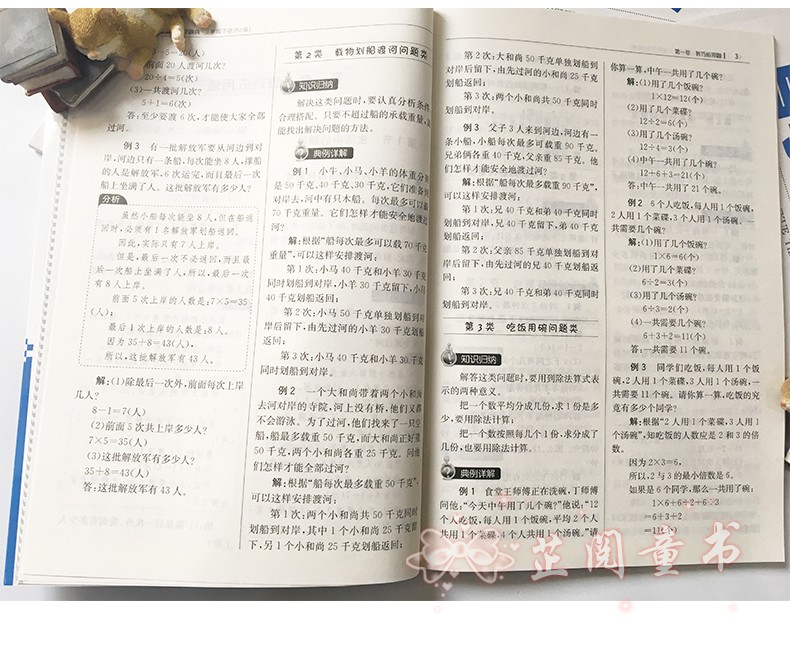 前面20人渡河几次?
20÷4=5(次)
(3)一共渡河几次?
5+1=6(次)
答:至少要渡6次,才能使大家全部
过河。
例3 有一批解放军要从河边到对
岸,河边只有一条船,每次能坐8人,撑船
的人是解放军,6次运完,而且最后一次
船上坐满了人。这批解放军有多少人?
分析
虽然小船每次能坐8人,但在船返
回时,必须有1名解放军划船返回。
因此,实际只有7人上岸。
但是,最后一次不必返回,而且最
后一次船上坐满了人,所以,最后一次
有8人上岸。
前面5次上岸的人数是:7×5=35
(人);
最后1次上岸的人数是:8人。
因为35+8=43(人),
所以,这批解放军有43人。
解:(1)除最后一次外,前面每次上岸
几人?
8-1=7(人)
(2)前面5次共上岸多少人?
7×5=35(人)
(3)这批解放军有多少人?
35+8=43(人)
答:这批解放军有43人。
第2类 载物划船渡河问题类
知识归纳
解决这类问题时,要认真分析条件,
合理搭配。只要不超过船的承载重量,
能找出解决问题的方法。
典例详解
例1 小牛、小马、小羊的体重分别
是50千克、40千克、30千克,它们准备
对岸去,河中有只木船。每次最多可以载
70千克重量。它们怎样才能安全地渡过
河?
解:根据“船每次最多可以载70千克
重量”,可以这样安排渡河:
第1次:小马40千克和小羊30千克
同时划船到对岸,小羊30千克留下,小马
40千克划船返回;
第2次:小马50千克单独划船到对
岸后留下,由先过河的小羊30千克划船
返回;
第3次:小马40千克和小羊30千克
同时划船到对岸。
例2 一个大和尚带着两个小和尚
去河对岸的寺院,河上没有桥,他们又都
不会游泳。为了过河,他们找来了一只空
船,船最多载重50千克,而大和尚正好重
50千克,两个小和尚各重25千克。问他
们怎样才能全部过河?
解:根据“船每次最多载重50千克”,
可以这样安排渡河:
第1次:两个小和尚共50千克同时
划船到对岸,其中1个小和尚25千克留
下,另1个小和尚25千克划船返回;
第一章 3
第2次:大和尚50千克单独划船到
对岸后留下,由先过河的小和尚25千克
划船返回;
第3次:两个小和尚共50千克同时
划船到对岸。
例3 父子3人来到河边,河边有一
条小船,小船每次最多可载重90千克。
兄弟俩各重40千克,父亲重85千克。他
们怎样才能安全地渡过河?
解:根据“船每次最多载重90千克”,
可以这样安排渡河:
第1次:兄40千克和弟40千克同时
划船到对岸,兄40千克留下,弟40千克
划船返回;
第2次:父亲85千克单独划船到对
岸后留下,由先过河的兄40千克划船返
回;
第3次:兄40千克和弟40千克同时
划船到对岸。
第3类 吃饭用碗问题类
知识归纳
解答这类问题时,要用到除法算式表
示的两种意义。
把一个数平均分成几份,求1份是多
少,要用除法计算;
把一个数按照每几个1份,求分成了
几份,也要用除法计算。
典例详解
例1 食堂王师傅正在洗碗,丁师傅
问他:“今天中午用了几个碗?”他说:“12
个人吃饭,每人用1个饭碗,平均2个人
共用1个菜碗,4个人共用1个汤碗。”请
你算一算,中午一共用了几个碗?
解:(1)用了几个饭碗?
1×12=12(个)
(2)用了几个菜碗?
12÷2=6(个)
(3)用了几个汤碗?
12÷4=3(个)
(4)中午一共用了几个碗?
12+6+3=21(个)
答:中午一共用了21个碗。
例2 6个人吃饭,每人用1个饭碗,
2人用1个菜碗,3个人用1个汤碗。一
共需要几个碗?
解:(1)用了几个饭碗?
1×6=6(个)
(2)用了几个菜碗?
6÷2=3(个)
(3)用了几个汤碗?
6÷3=2(个)
(4)一共需要几个碗?
6+3+2=11(个)
答:一共需要11个碗。
例3 同学们吃饭,每人用1个饭
碗,2人用1个菜碗,3人用1个汤碗,一
共需要11个碗。请你算一算,吃饭的究
竟有多少个同学?
解:根据“2人用1个菜碗,3人用1
个汤碗”,知吃饭的人数应是2和3的倍
数。
因为2×3=6,
所以,2与3的最小倍数是6。
如果是6个同学,那么一共用了碗:
1×6+6÷2+6÷3
=6+3+2
=11(个)
芷阅童书